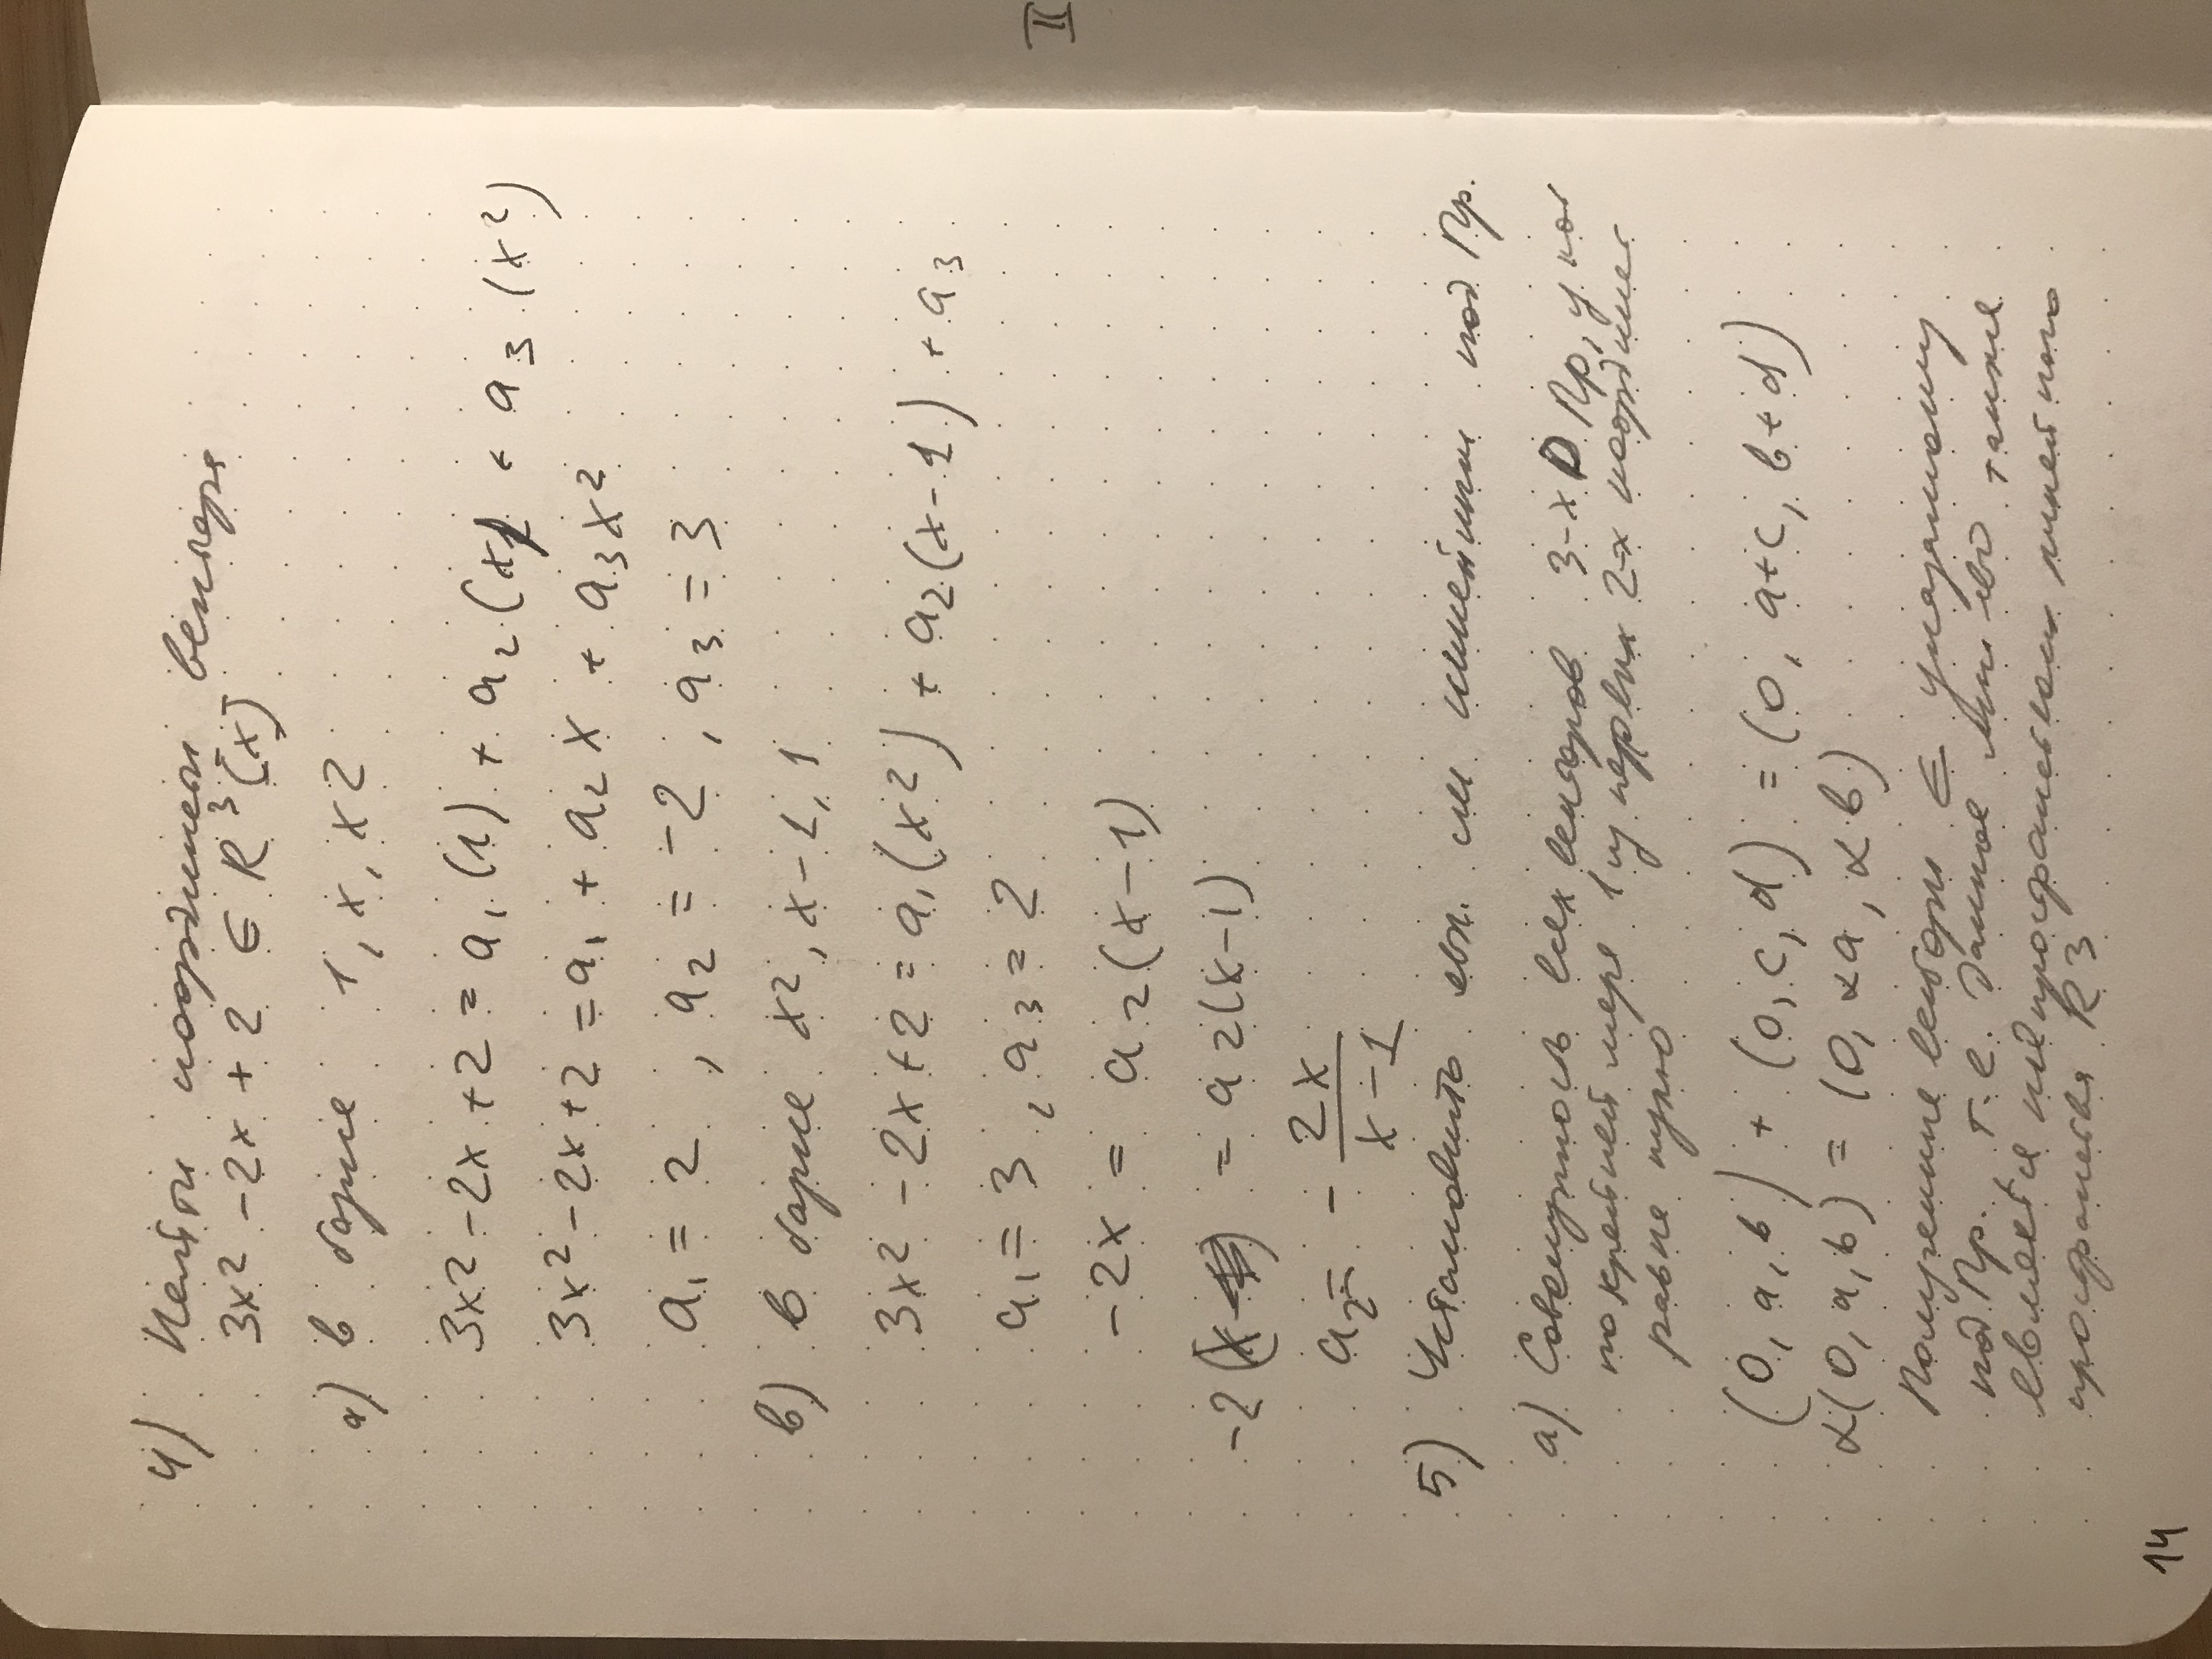 4) Найти координаты вектора
3x² - 2x + 2 ∈ R³[x]
а) в базисе 1, x, x2
3x² - 2x + 2 = a₁(1) + a₂(x) + a₃(x²)
3x² - 2x + 2 = a₁ + a₂x + a₃x²
a₁ = 2 , a₂ = -2 , a₃ = 3
в) в базисе x², x-1, 1
3x² - 2x + 2 = a₁(x²) + a₂(x-1) + a₃
a₁ = 3 , a₃ = 2
-2x = a₂(x-1)
-2(x = a2(x-1)
a₂ = - 2x / x-1
5) Установить явл. ли линейным под Пр.
а) Совокупность всех векторов 3-х D Пр, у кот
по крайней мере 1 из первых 2-х координат
равна нулю
(0, a, b) + (0, c, d) = (0, a+c, b+d)
α(0, a, b) = (0, αa, αb)
Полученные векторы ∈ указанному
под Пр., т.е. данное мн-во также
является подпространством линейного
пространства R3
14
II